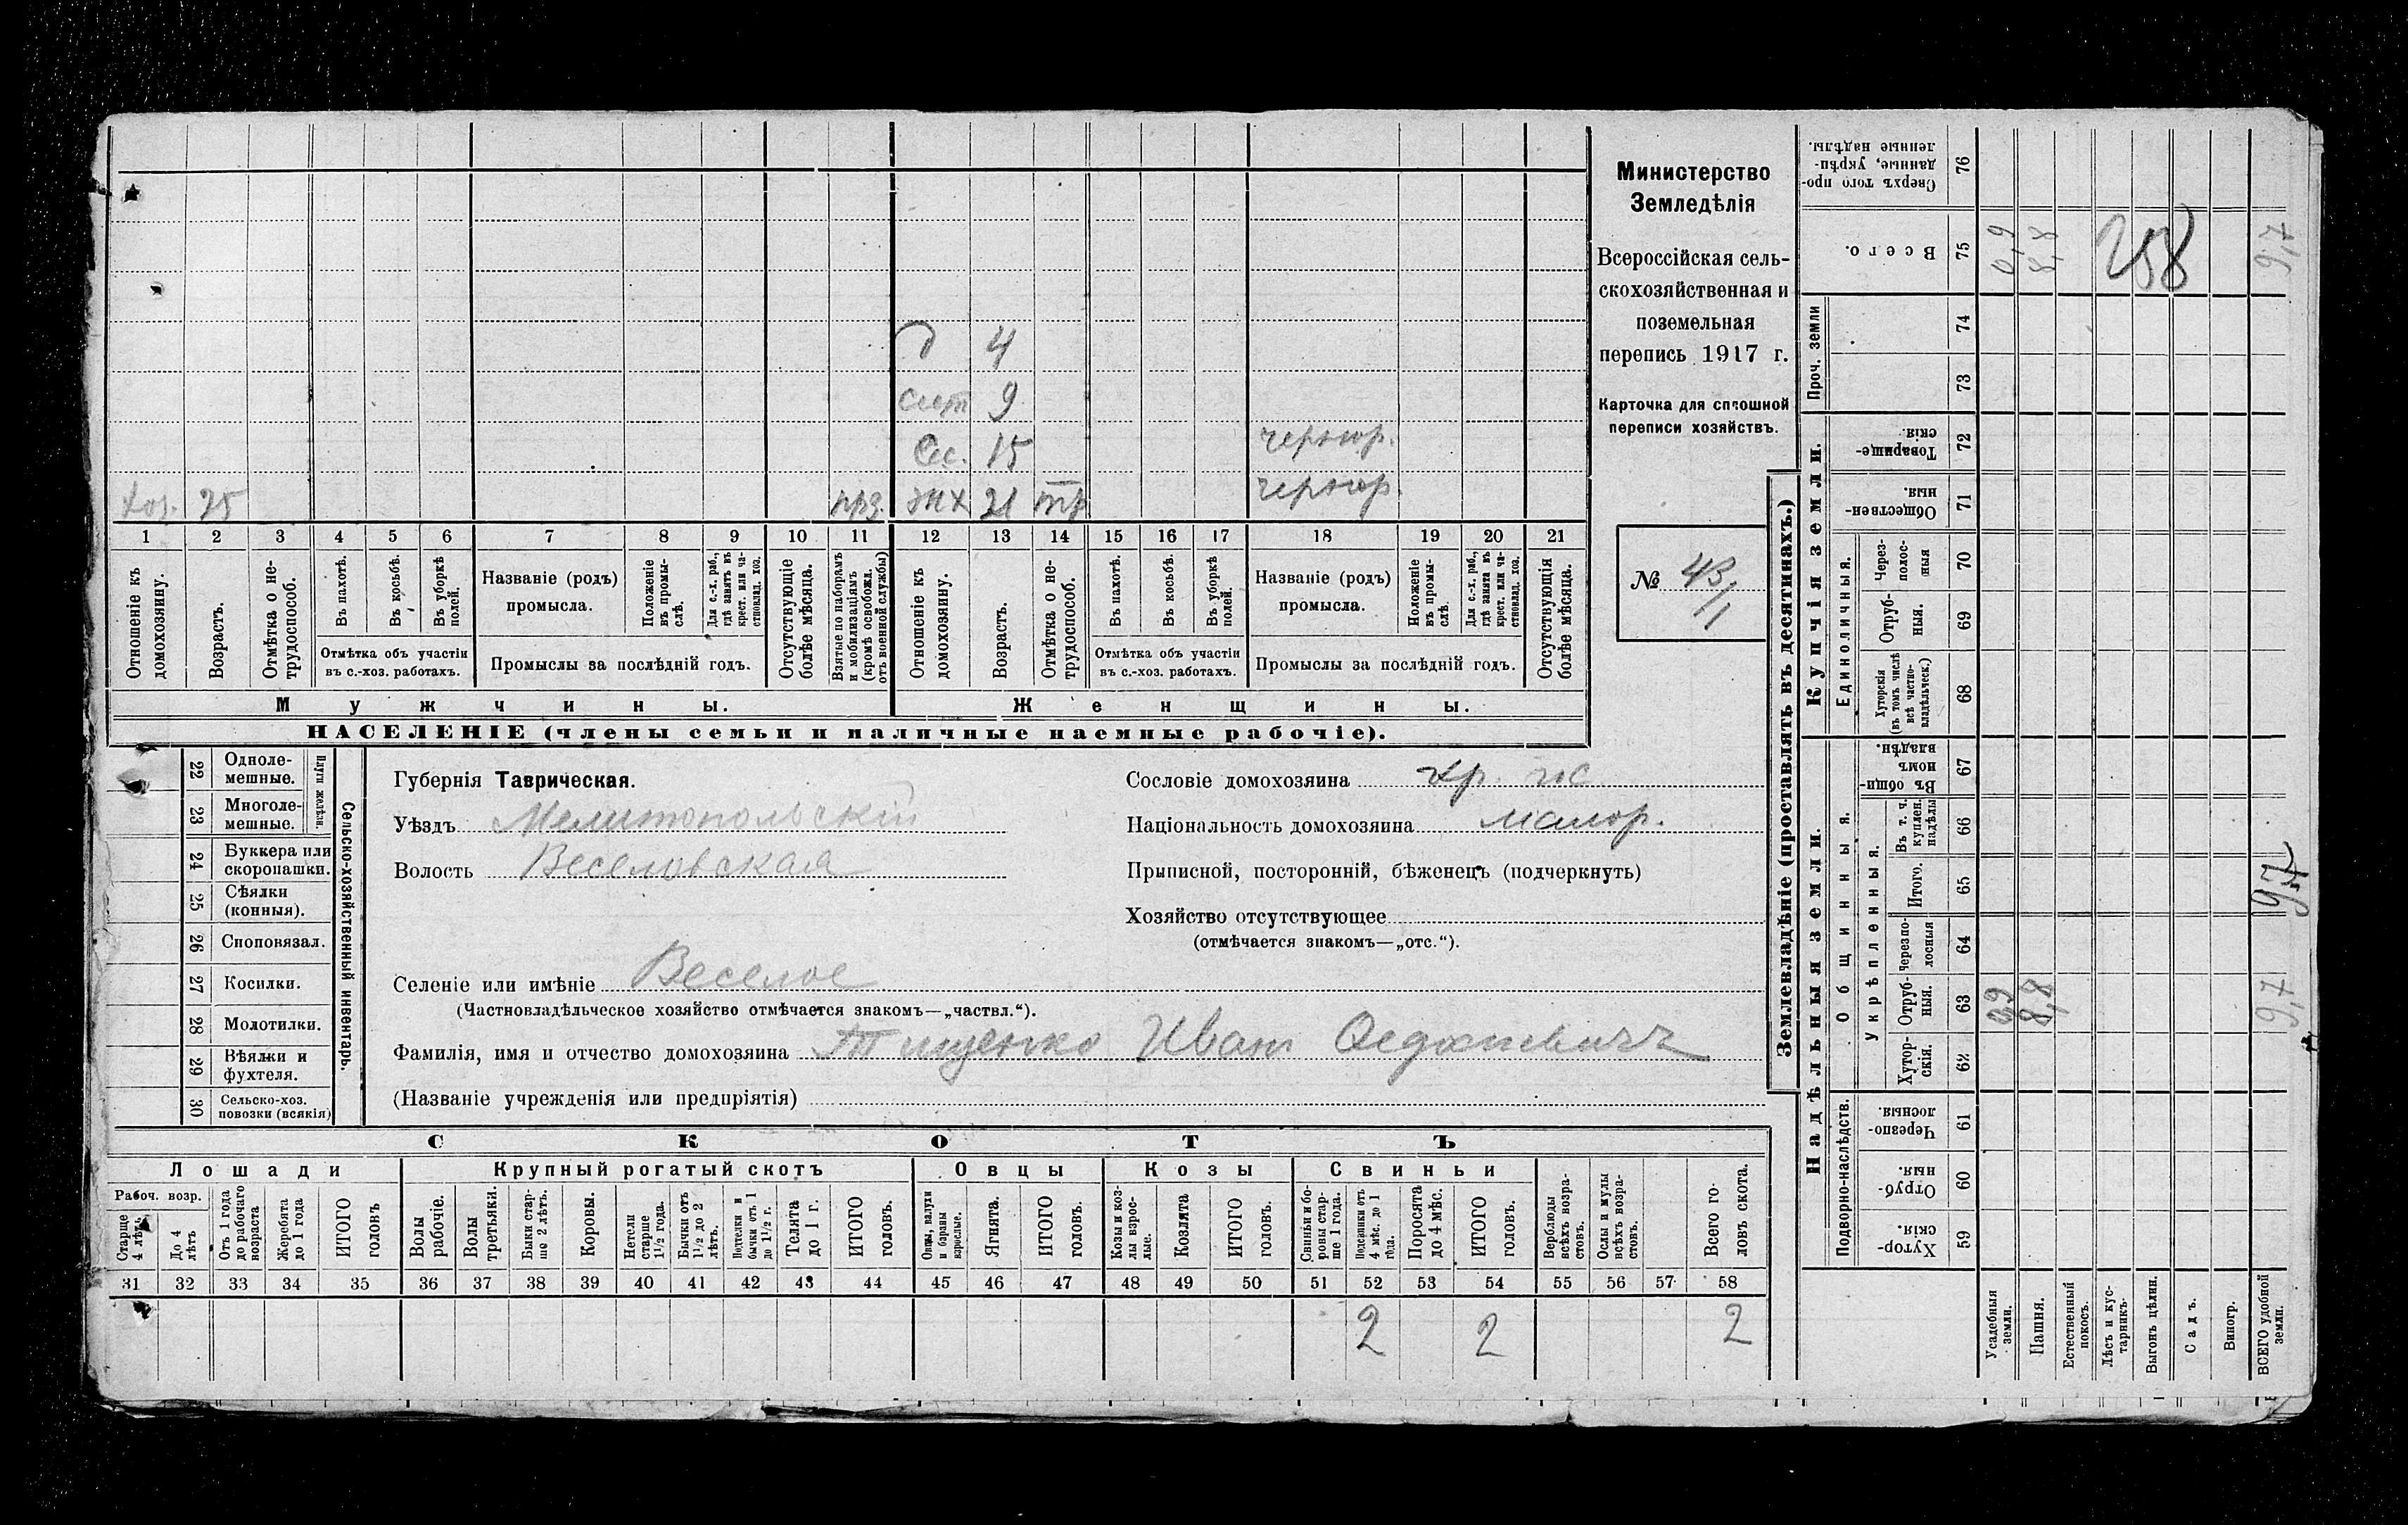 д 4
сест 9
Сес. 15 чернор.
Хоз. 25 прз. жх 21 тр чернор.
1 2 3 4 5 6 7 8 9 10 11 12 13 14 15 16 17 18 19 20 21
Отношеніе къ домохозяину.
Возрастъ.
Отмѣтка о не-трудоспособ.
Въ пахотѣ.
Въ косьбѣ.
Въ уборкѣ полей.
Отмѣтка объ участіи
въ с.-хоз. работахъ.
Названіе (родъ)
промысла.
Положеніе въ промы-слѣ.
Для с.-х. раб., гдѣ занятъ въ крест. или ча-стновлад. хоз.
Промыслы за послѣдній годъ.
Отсутствующіе болѣе мѣсяца.
Взятые по наборамъ и мобилизаціямъ (кромѣ освобожд. отъ военной службы)
Отношеніе къ домохозяину.
Возрастъ.
Отмѣтка о не-трудоспособ.
Въ пахотѣ.
Въ косьбѣ.
Въ уборкѣ полей.
Отмѣтка объ участіи
въ с.-хоз. работахъ.
Названіе (родъ)
промысла.
Положеніе въ промы-слѣ.
Для с.-х. раб., гдѣ занята въ крест. или ча-стновлад. хоз.
Промыслы за послѣдній годъ.
Отсутствующія болѣе мѣсяца.
Мужчины.
Женщины.
НАСЕЛЕНІЕ (члены семьи и наличные наемные рабочіе).
Министерство
Земледѣлія
Всероссійская сель-
скохозяйственная и
поземельная
перепись 1917 г.
Карточка для сплошной
переписи хозяйствъ.
№ 43/1
22 Одноле-
мешные.
23 Многоле-
мешные.
Плуги желѣзн.
24 Буккера или
скоропашки.
25 Сѣялки
(конныя).
26 Сноповязал.
27 Косилки.
28 Молотилки.
29 Вѣялки и
фухтеля.
30 Сельско-хоз.
повозки (всякія)
Сельско-хозяйственный инвентарь.
Губернія Таврическая.
Уѣздъ Мелитопольскій
Волость Веселовская
Сословіе домохозяина кр.
Національность домохозяина малор.
Приписной, посторонній, бѣженецъ (подчеркнуть)
Хозяйство отсутствующее
(отмѣчается знакомъ—„отс.“).
Селеніе или имѣніе Веселое
(Частновладѣльческое хозяйство отмѣчается знакомъ—„частвл.“).
Фамилія, имя и отчество домохозяина Тищенко Иван
(Названіе учрежденія или предпріятія)
СКОТЪ
Лошади
Крупный рогатый скотъ
Овцы
Козы
Свиньи
Рабоч. возр.
Старше 4 лѣтъ
До 4 лѣтъ
Отъ 1 года до рабочаго возраста
Жеребята до 1 года
ИТОГО головъ
Волы рабочіе.
Волы третьяки.
Быки стар-ше 2 лѣтъ.
Коровы.
Нетели старше 1½ года.
Бычки отъ 1½ до 2 лѣтъ.
Подтелки и бычки отъ 1 до 1½ г.
Телята до 1 г.
ИТОГО головъ.
Овцы, валухи и бараны взрослые.
Ягнята.
ИТОГО головъ.
Козы и коз-лы взрос-лые.
Козлята
ИТОГО головъ.
Свиньи и бо-ровы стар-ше 1 года.
Подсвинки отъ 4 мѣс. до 1 года.
Поросята до 4 мѣс.
ИТОГО головъ.
Верблюды всѣхъ возра-стовъ.
Ослы и мулы всѣхъ возра-стовъ.
Всего го-ловъ скота.
31 32 33 34 35 36 37 38 39 40 41 42 43 44 45 46 47 48 49 50 51 52 53 54 55 56 57 58
2 2 2
Землевладѣніе (проставлять въ десятинахъ.)
Надѣльныя земли.
Купчія земли.
Проч. земли
Подворно-наслѣдств.
Общинныя.
Укрѣпленныя.
Единоличныя.
Сверхъ того про-данные, укрѣп-ленные надѣлы. 76
Всего. 75 0,9 8,8 258 9,7
74
73
Товарище-скія 72
Обществен-ныя. 71
Через-полос-ныя 70
Отруб-ныя. 69
Хуторскія (въ томъ числѣ всѣ частно-владѣльческ.) 68
Въ общин-номъ владѣн. 67
Въ т. ч. куплен. надѣлы 66
Итого. 65 9,7
Черезпо-лосныя 64
Отруб-ныя. 63 0,9 8,8 9,7
Хутор-скія. 62
Черезпо-лосныя. 61
Отруб-ныя. 60
Хутор-скія 59
Усадебныя земли.
Пашня.
Естественный покосъ.
Лѣсъ и кус-тарникъ.
Выгонъ цѣлин.
Садъ.
Виногр.
ВСЕГО удобной земли.